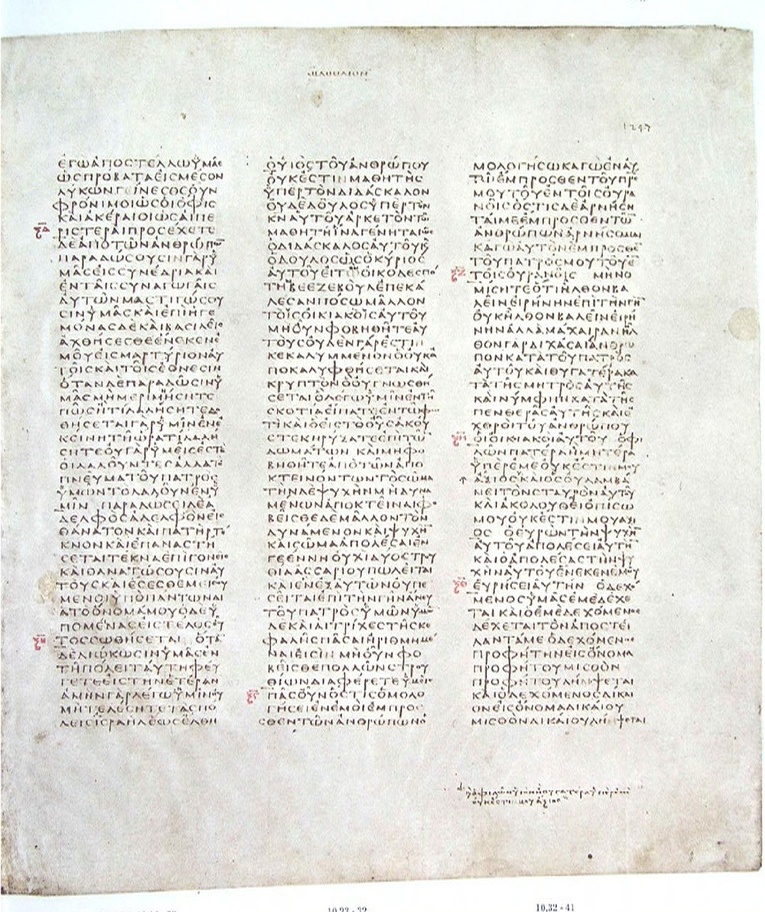 ΜΑΘΘΑΙΟΝ
1247
ΕΓΩΑΠΟϹΤΕΛΛΩΫΜΑϹ
ΩϹΠΡΟΒΑΤΑΕΙϹΜΕϹΟΝ
ΛΥΚΩΝΓΕΙΝΕϹΘΕΟΥΝ
ΦΡΟΝΙΜΟΙΩϹΟΙΟΦΙϹ
ΚΑΙΑΚΕΡΑΙΟΙΩϹΑΙΠΕ
ΡΙϹΤΕΡΑΙΠΡΟϹΕΧΕΤΕ
ΔΕΑΠΟΤΩΝΑΝΘΡΩΠΩ
ΠΑΡΑΔΩϹΟΥϹΙΝΓΑΡΫ
ΜΑϹΕΙϹϹΥΝΕΔΡΙΑΚΑΙ
ΕΝΤΑΙϹϹΥΝΑΓΩΓΑΙϹ
ΑΥΤΩΝΜΑϹΤΙΓΩϹΟΥ
ϹΙΝΫΜΑϹΚΑΙΕΠΙΗΓΕ
ΜΟΝΑϹΔΕΚΑΙΒΑϹΙΛΕΙϹ
ΑΧΘΗϹΕϹΘΕΕΝΕΚΕΝΕ
ΜΟΥΕΙϹΜΑΡΤΥΡΙΟΝΑΥ
ΤΟΙϹΚΑΙΤΟΙϹΕΘΝΕϹΙΝ
ΟΤΑΝΔΕΠΑΡΑΔΩϹΙΝΫ
ΜΑϹΜΗΜΕΡΙΜΝΗϹΗΤΕ
ΠΩϹΗΤΙΛΑΛΗϹΗΤΕΔΟ
ΘΗϹΕΤΑΙΓΑΡΫΜΙΝΕΝΕ
ΚΕΙΝΗΤΗΩΡΑΤΙΛΑΛΗ
ϹΗΤΕΟΥΓΑΡΫΜΕΙϹΕϹΤΕ
ΟΙΛΑΛΟΥΝΤΕϹΑΛΛΑΤΟ
ΠΝΕΥΜΑΤΟΥΠΑΤΡΟϹ
ΫΜΩΝΤΟΛΑΛΟΥΝΕΝΫ
ΜΙΝ ΠΑΡΑΔΩϹΕΙΔΕΑ
ΔΕΛΦΟϹΑΔΕΛΦΟΝΕΙϹ
ΘΑΝΑΤΟΝΚΑΙΠΑΤΗΡΤΕ
ΚΝΟΝΚΑΙΕΠΑΝΑϹΤΗ
ϹΕΤΑΙΤΕΚΝΑΕΠΙΓΟΝΕΙϹ
ΚΑΙΘΑΝΑΤΩϹΟΥϹΙΝΑΥ
ΤΟΥϹΚΑΙΕϹΕϹΘΕΜΕΙϹΟΥ
ΜΕΝΟΙΫΠΟΠΑΝΤΩΝΔΙ
ΑΤΟΟΝΟΜΑΜΟΥΟΔΕΫ
ΠΟΜΕΙΝΑϹΕΙϹΤΕΛΟϹΟΥ
ΤΟϹϹΩΘΗϹΕΤΑΙ ΟΤΑΝ
ΔΕΔΙΩΚΩϹΙΝΫΜΑϹΕΝ
ΤΗΠΟΛΕΙΤΑΥΤΗΦΕΥ
ΓΕΤΕΕΙϹΤΗΝΕΤΕΡΑΝ
ΑΜΗΝΓΑΡΛΕΓΩΫΜΙΝΟΥ
ΜΗΤΕΛΕϹΗΤΕΤΑϹΠΟ
ΛΕΙϹΙϹΡΑΗΛΕΩϹΕΛΘΗ
ΟΥΙΟϹΤΟΥΑΝΘΡΩΠΟΥ
ΟΥΚΕϹΤΙΝΜΑΘΗΤΗϹ
ΫΠΕΡΤΟΝΔΙΔΑϹΚΑΛΟΝ
ΟΥΔΕΔΟΥΛΟϹΫΠΕΡΤΟΝ
ΚΝΑΥΤΟΥΑΡΚΕΤΟΝΤΩ
ΜΑΘΗΤΗΙΝΑΓΕΝΗΤΑΙΩϹ
ΟΔΙΔΑϹΚΑΛΟϹΑΥΤΟΥΚΑΙ
ΟΔΟΥΛΟϹΩϹΟΚΥΡΙΟϹ
ΑΥΤΟΥΕΙΤΩΟΙΚΟΔΕϹΠΟ
ΤΗΒΕΕΖΕΒΟΥΛΕΠΕΚΑ
ΛΕϹΑΝΠΟϹΩΜΑΛΛΟΝ
ΤΟΙϹΟΙΚΙΑΚΟΙϹΑΥΤΟΥ
ΜΗΟΥΝΦΟΒΗΘΗΤΕΑΥ
ΤΟΥϹΟΥΔΕΝΓΑΡΕϹΤΙΝ
ΚΕΚΑΛΥΜΜΕΝΟΝΟΟΥΚΑ
ΠΟΚΑΛΥΦΘΗϹΕΤΑΙΚΑΙ
ΚΡΥΠΤΟΝΟΟΥΓΝΩϹΘΗ
ϹΕΤΑΙΟΛΕΓΩΫΜΙΝΕΝΤΗ
ϹΚΟΤΙΑΕΙΠΑΤΕΕΝΤΩΦΩ
ΤΙΚΑΙΟΕΙϹΤΟΟΥϹΑΚΟΥ
ΕΤΕΚΗΡΥΞΑΤΕΕΠΙΤΩ
ΔΩΜΑΤΩΝ ΚΑΙΜΗΦΟ
ΒΗΘΗΤΕΑΠΟΤΩΝΑΠΟ
ΚΤΕΙΝΟΝΤΩΝΤΟϹΩΜΑ
ΤΗΝΔΕΨΥΧΗΝΜΗΔΥΝΑ
ΜΕΝΩΝΑΠΟΚΤΕΙΝΑΙΦΟ
ΒΕΙϹΘΕΔΕΜΑΛΛΟΝΤΟΝ
ΔΥΝΑΜΕΝΟΝΚΑΙΨΥΧΗ
ΚΑΙϹΩΜΑΑΠΟΛΕϹΑΙΕΝ
ΓΕΕΝΝΗΟΥΧΙΔΥΟϹΤΡΟΥ
ΘΙΑΑϹϹΑΡΙΟΥΠΩΛΕΙΤΑΙ
ΚΑΙΕΝΕΞΑΥΤΩΝΟΥΠΕ
ϹΕΙΤΑΙΕΠΙΤΗΝΓΗΝΑΝΕΥ
ΤΟΥΠΑΤΡΟϹΫΜΩΝΫΜΩΝ
ΔΕΚΑΙΑΙΤΡΙΧΕϹΤΗϹΚΕ
ΦΑΛΗϹΠΑϹΑΙΗΡΙΘΜΗΜΕ
ΝΑΙΕΙϹΙΝ ΜΗΟΥΝΦΟ
ΒΕΙϹΘΕΠΟΛΛΩΝϹΤΡΟΥ
ΘΙΩΝΔΙΑΦΕΡΕΤΕΫΜΕΙϹ
ΠΑϹΟΥΝΟϹΤΙϹΟΜΟΛΟ
ΓΗϹΕΙΕΝΕΜΟΙΕΜΠΡΟϹ
ΘΕΝΤΩΝΑΝΘΡΩΠΩΝΟ
ΜΟΛΟΓΗϹΩΚΑΓΩΕΝΑΥ
ΤΩΕΜΠΡΟϹΘΕΝΤΟΥΠΡϹ
ΜΟΥΤΟΥΕΝΤΟΙϹΟΥΡΑ
ΝΟΙϹΟϹΤΙϹΔΕΑΡΝΗϹΗ
ΤΑΙΜΕΕΜΠΡΟϹΘΕΝΤΩ
ΑΝΘΡΩΠΩΝΑΡΝΗϹΟΜΑΙ
ΚΑΓΩΑΥΤΟΝΕΜΠΡΟϹΘΕ
ΤΟΥΠΑΤΡΟϹΜΟΥΤΟΥΕ
ΤΟΙϹΟΥΡΑΝΟΙϹ ΜΗΝΟ
ΜΙϹΗΤΕΟΤΙΗΛΘΟΝΒΑ
ΛΕΙΝΕΙΡΗΝΗΝΕΠΙΤΗΝΓΗ
ΟΥΚΗΛΘΟΝΒΑΛΕΙΝΕΙΡΗ
ΝΗΝΑΛΛΑΜΑΧΑΙΡΑΝΗΛ
ΘΟΝΓΑΡΔΙΧΑϹΑΙΑΝΘΡΩ
ΠΟΝΚΑΤΑΤΟΥΠΑΤΡΟϹ
ΑΥΤΟΥΚΑΙΘΥΓΑΤΕΡΑΚΑ
ΤΑΤΗϹΜΗΤΡΟϹΑΥΤΗϹ
ΚΑΙΝΥΜΦΗΝΚΑΤΑΤΗϹ
ΠΕΝΘΕΡΑϹΑΥΤΗϹΚΑΙΕ
ΧΘΡΟΙΤΟΥΑΝΘΡΩΠΟΥ
ΟΙΟΙΚΙΑΚΟΙΑΥΤΟΥ ΟΦΙ
ΛΩΝΠΑΤΕΡΑΗΜΗΤΕΡΑ
ΫΠΕΡΕΜΕΟΥΚΕϹΤΙΝΜΟΥ
ΑΞΙΟϹΚΑΙΟϹΟΥΛΑΜΒΑ
ΝΕΙΤΟΝϹΤΑΥΡΟΝΑΥΤΟΥ
ΚΑΙΑΚΟΛΟΥΘΕΙΟΠΙϹΩ
ΜΟΥΟΥΚΕϹΤΙΝΜΟΥΑΞΙ
ΟϹ ΟΕΥΡΩΝΤΗΝΨΥΧΗ
ΑΥΤΟΥΑΠΟΛΕϹΕΙΑΥΤΗ
ΚΑΙΟΑΠΟΛΕϹΑϹΤΗΝΨΥ
ΧΗΝΑΥΤΟΥΕΝΕΚΕΝΕΜΟΥ
ΕΥΡΗϹΕΙΑΥΤΗΝ ΟΔΕΧΟ
ΜΕΝΟϹΫΜΑϹΕΜΕΔΕΧΕ
ΤΑΙΚΑΙΟΕΜΕΔΕΧΟΜΕΝΟϹ
ΔΕΧΕΤΑΙΤΟΝΑΠΟϹΤΕΙ
ΛΑΝΤΑΜΕΟΔΕΧΟΜΕΝΟϹ
ΠΡΟΦΗΤΗΝΕΙϹΟΝΟΜΑ
ΠΡΟΦΗΤΟΥΜΙϹΘΟΝ
ΠΡΟΦΗΤΟΥΛΗΜΨΕΤΑΙ
ΚΑΙΟΔΕΧΟΜΕΝΟϹΔΙΚΑΙ
ΟΝΕΙϹΟΝΟΜΑΔΙΚΑΙΟΥ
ΜΙϹΘΟΝΔΙΚΑΙΟΥΛΗΜΨΕΤΑΙ
10,32 - 41